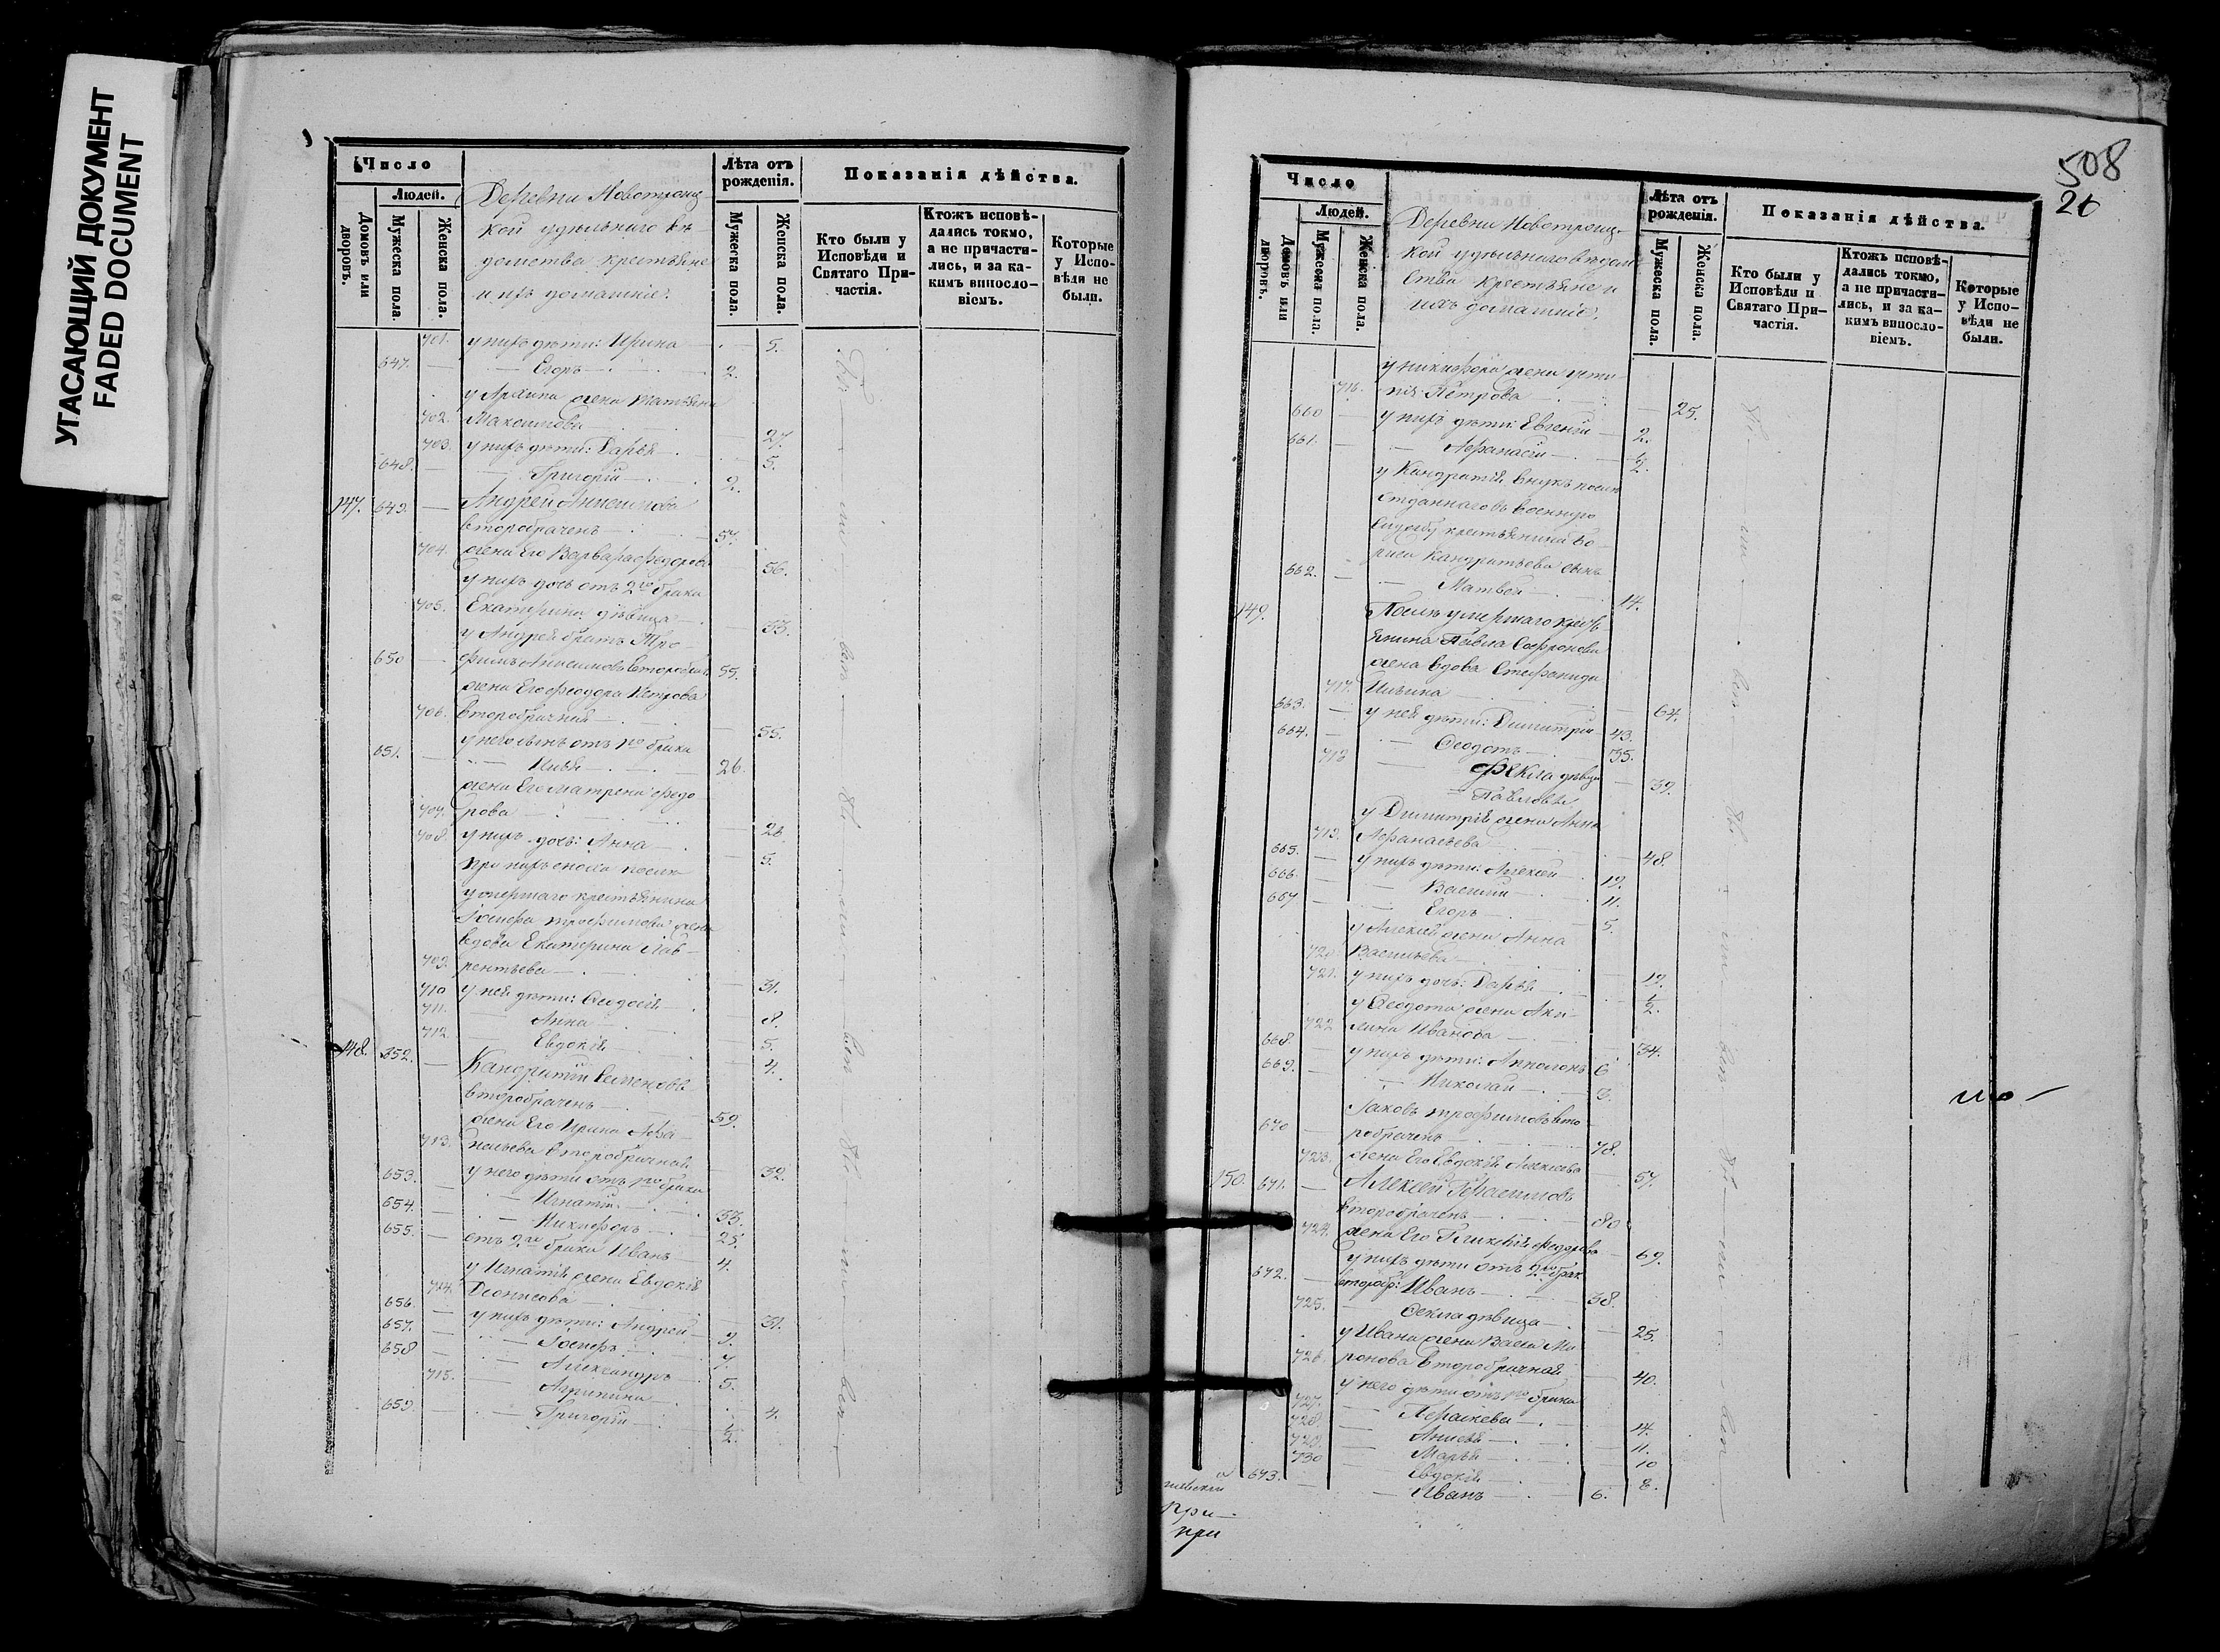 УГАСАЮЩИЙ ДОКУМЕНТ
FADED DOCUMENT
Число
Людей.
Домовъ или дворовъ.
Мужеска пола.
Женска пола.
Деревни Новотроиц-
кой удѣльнаго вѣ-
домства крестьяне
и ихъ домашніе.
Лѣта отъ рожденія.
Мужеска пола.
Женска пола.
Показанія дѣйства.
Кто были у Исповѣди и Святаго При-частія.
Ктожъ исповѣ-дались токмо, а не причасти-лись, и за ка-кимъ виносло-віемъ.
Которые у Испо-вѣди не были.
701. у нихъ дѣти: Ирина 5.
647. Егоръ 2.
у Архипа жена Татьяна
702. Максимова 27.
703. у нихъ дѣти: Дарья 5.
648. Григорій 2.
147. 649. Андрей Анисимовъ
второбраченъ 57.
704. жена Его Варвара Федорова 56.
у нихъ дочь отъ 2го брака
705. Екатерина дѣвица 33.
у Андрея братъ Тро-
650 фимъ Анисимовъ второбрач 55.
жена Его Феодора Петрова
706. второбрачная 55.
у него сынъ отъ 1го брака
651. Илья 26.
жена Его Матрена Федо
707. рова 26
708. у нихъ дочь: Анна 5.
при нихъ сноха послѣ
умершаго крестьянина
Іосифа Трофимова жена
вдова Екатерина Лав-
709. рентьева 31.
710 у ней дѣти: Феодосія 8.
711. Анна 5.
712 Евдокія 4.
148. 652. Кандратій Семеновъ
второбраченъ 59.
жена Его Ирина Афа-
713. насьева второбрачная 32.
653. у него дѣти отъ 1го брака
Игнатій 33.
654. Никифоръ 25.
655. отъ 2го брака Иванъ 4.
у Игнатія жена Евдокія
714. Деонисова 31.
656. у нихъ дѣти: Андрей 9.
657. Іосифъ 7.
658 Александръ 5.
715. Агрипина 4.
659. Григорій 1/2.
508
26
Число
Людей.
Домовъ или дворовъ.
Мужеска пола.
Женска пола.
Деревни Новотроиц-
кой удѣльнаго вѣдом
ства крестьяне и
ихъ домашніе.
Лѣта отъ рожденія.
Мужеска пола.
Женска пола.
Показанія дѣйства.
Кто были у Исповѣди и Святаго При-частія.
Ктожъ исповѣ-дались токмо, а не причасти-лись, и за ка-кимъ виносло-віемъ.
Которые у Испо-вѣди не были.
у Никифора жена Усти-
716. нія Петрова 25.
660 у нихъ дѣти: Евгеній 2.
661. Афанасій 1/2.
у Кандратія внукъ послѣ
отданнаго въ военную
службу крестьянина Бо-
риса Кандратьева сынъ
662. Матвей 14.
149. Послѣ умершаго крест
янина Павла Софронова
жена вдова Стефанида
717. Ильина 64.
663. у ней дѣти: Димитрій 43.
664. Феодотъ 35.
718 Фекла дѣвица 39.
Павловы
у Димитрія жена Анна
719. Афанасьева 48.
665. у нихъ дѣти: Алексей 19.
666. Василій 11.
667 Егоръ 5.
у Алексія жена Анна
720. Васильева 19.
721. у нихъ дочь: Дарья 1/2.
у Феодота жена Аки-
722 лина Иванова 34.
668. у нихъ дѣти: Апполонъ 6
669. Николай 3.
Іаковъ Трофимовъ вто-
670 робраченъ 78.
723. жена Его Евдокія Алексѣева 57.
150. 671. Алексей Герасимовъ
второбраченъ 80
724. жена Его Гликерія Федорова 69.
у нихъ дѣти отъ 2го брак
672. второбр: Иванъ 38.
725. Фекла дѣвица 25.
у Ивана жена Васса Ми
726. ронова второбрачная 40.
у него дѣти отъ 1го брака
727. Параскева 14.
728. Анисья 11.
729. Марья 10
730 Евдокія 8.
673. Иванъ 6.
при
при